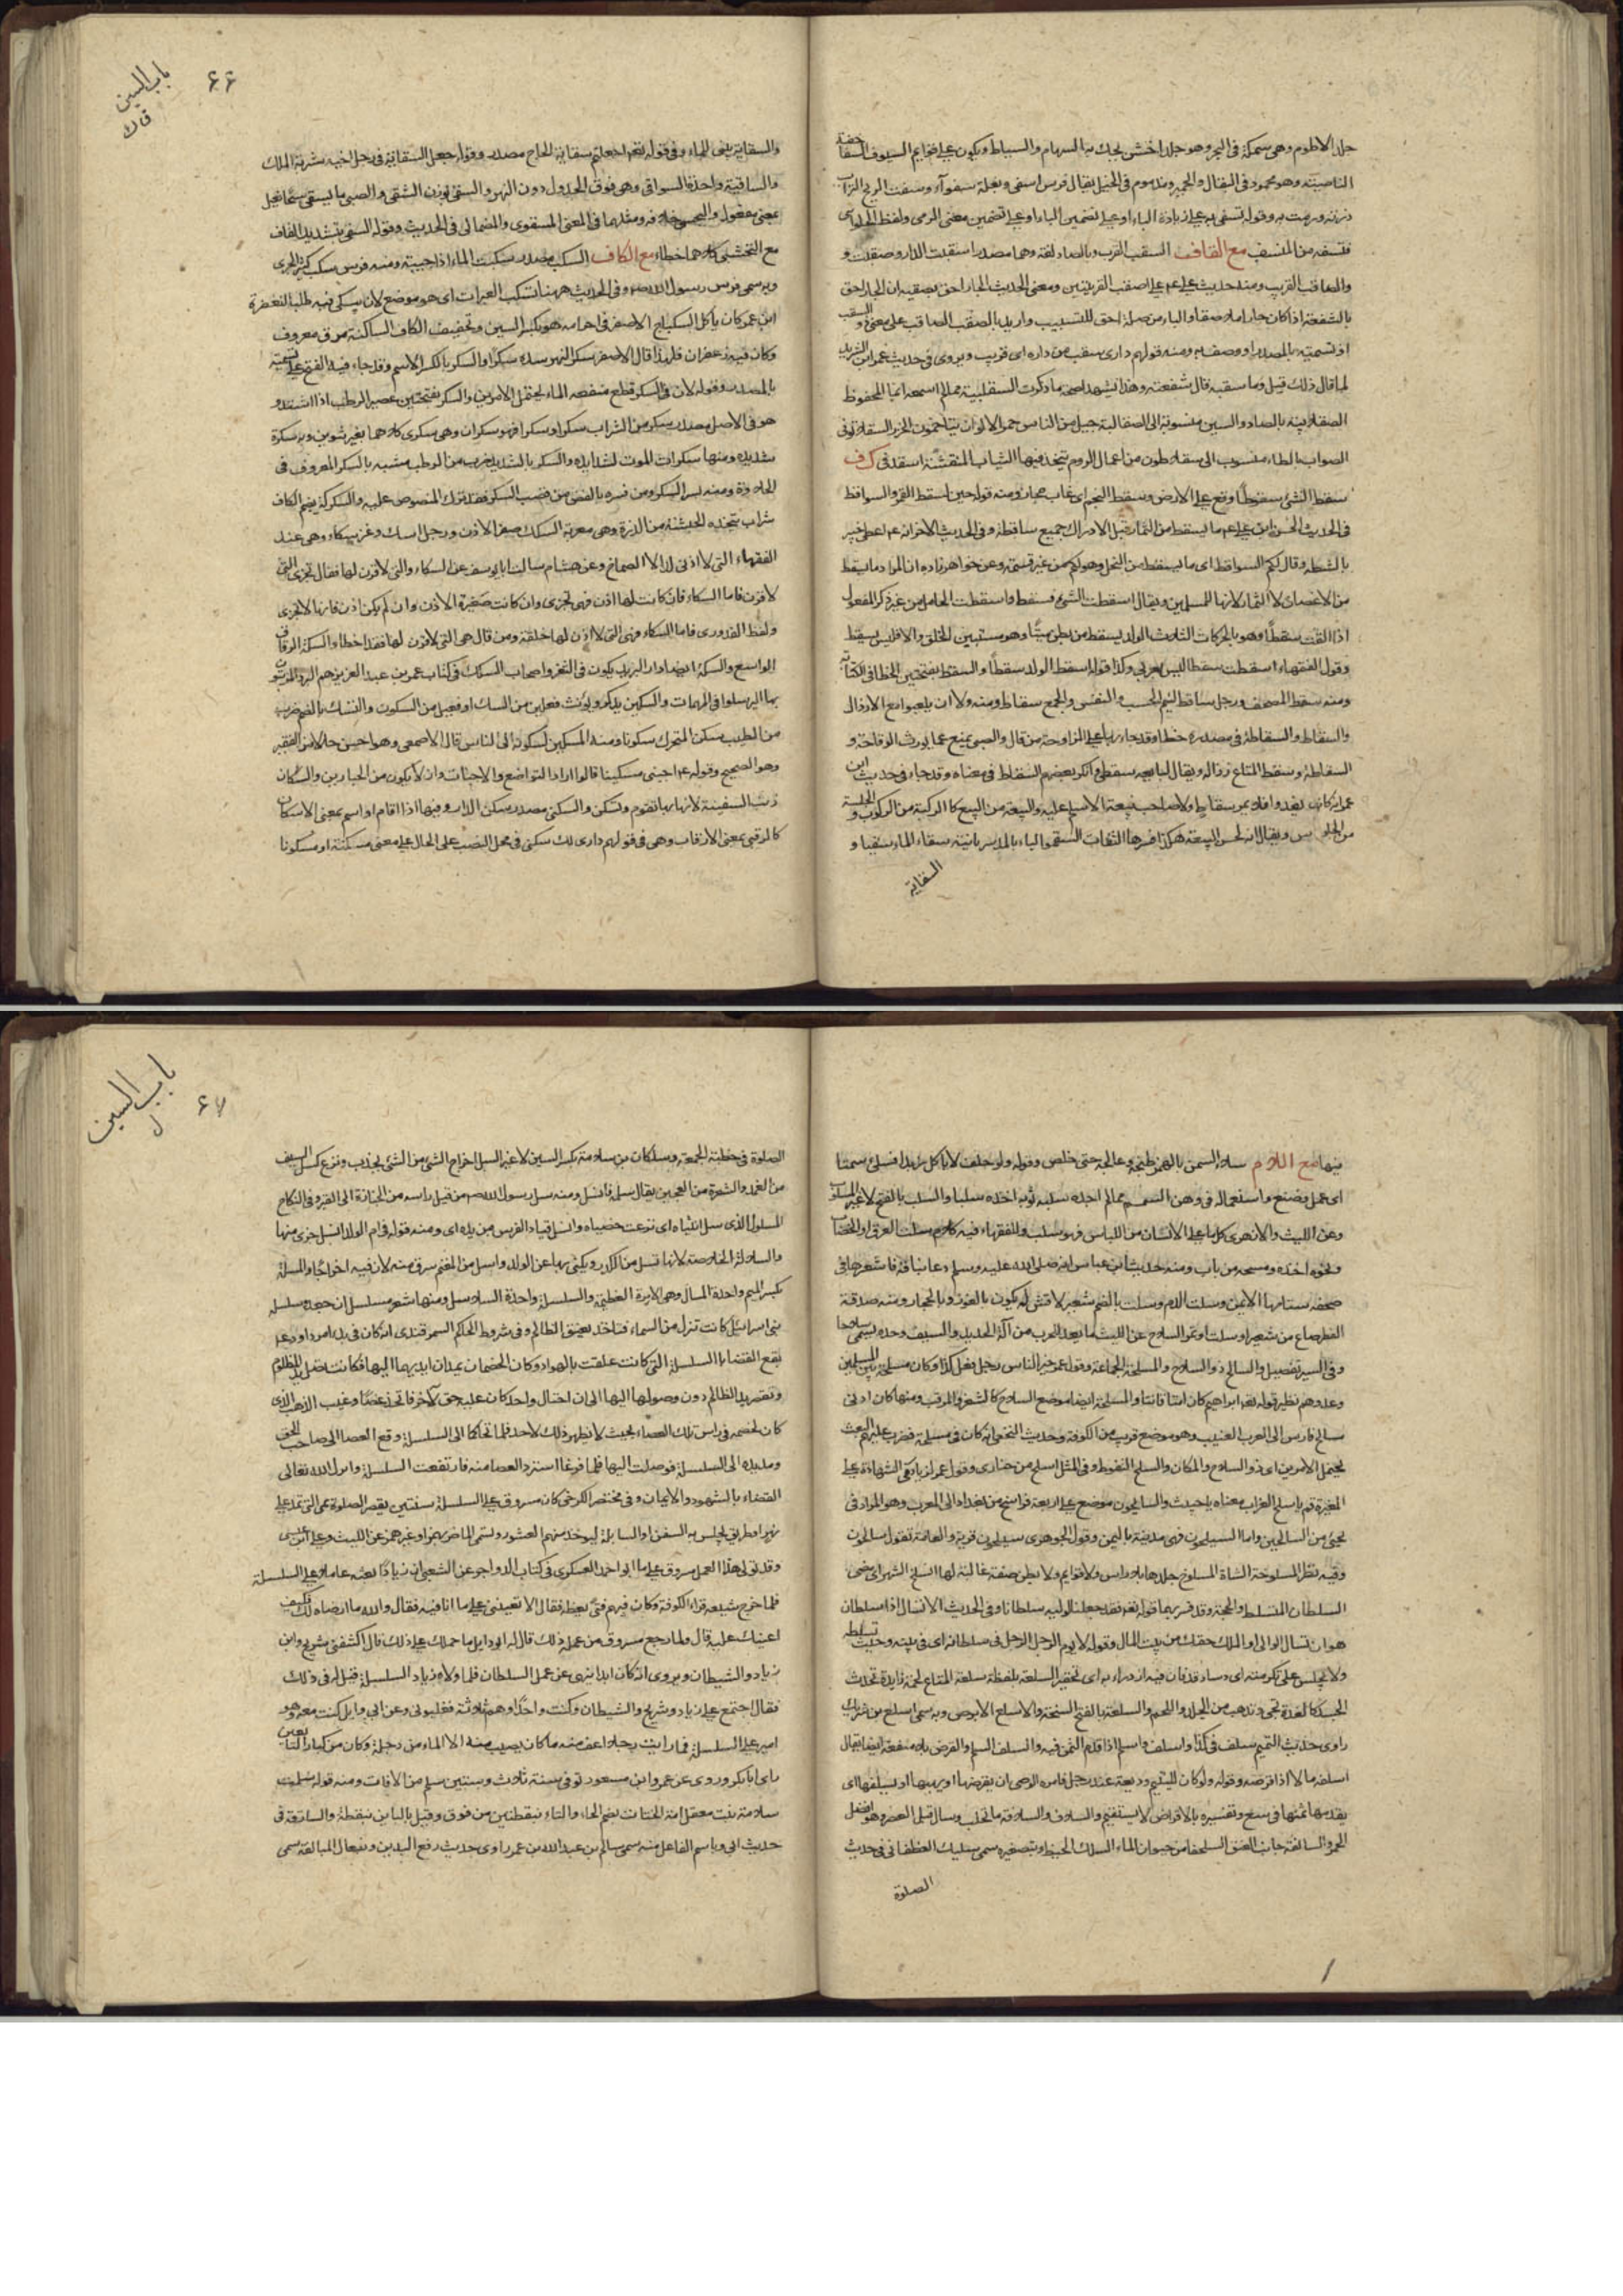 جلد الاطوم وهى سمكة فى البحر وهو جلد اخشن يحك به السهام والسياط ويكون على قوايم السيوف السفا خفة
الناصية وهو محمود فى البغال والحمير ومذموم فى الخيل يقال فرس اسفى وبغلة سفوآء وسفت الريح التراب
ذرته ورمت به وقوله تسفى به على زيادة الباء او على تضمين معنى الرمى ولفظ
فتسفه من المنسف مع القاف السقب القرب وبالصاد لغة وهما مصدرا سقبت الدار وصقبت و
والصاقب القريب ومنه حديث على اصقب القريتين ومعنى الحديث الجار احق بصقبه ان الجار احق
بالشفعة اذا كان جارا ملاصقا والباء من صلة احق للتسبيب واريد بالصقب الصاقب على معنى ذو السقب
او تسمية بالمصدر او وصف به ومنه قولهم دارى سقب من داره اى قريب ويروى فى حديث عمرو بن الشريد
لما قال ذلك قيل وما سقبه قال شفعته وهذا يشهد لصحة ما ذكرت السقلبية مما لم اسمعه انما المحفوظ
الصقلابية بالصاد والسين منسوبة الى الصقالبة جيل من الناس حمر الالوان يتاخمون الخزر السقلاطونى
الصواب بالطاء منسوب الى سقلاطون من اعمال الروم يتخذ فيها الثياب المنقشة اسقد فى ك ف
سقط الشئ سقوطا وقع على الارض وسقط النجم اى غاب مجازا ومنه قوله حين يسقط القمر والسواقط
فى الحديث الحسن ابن على ما يسقط من الثمار قبل الادراك جميع ساقطة وفى الحديث اعطى خيبر
بالشطر وقال لكم السواقط اى ما يسقط من النخل وهو لكم من غير قسمة وعن خواهر زاده ان المراد ما يسقط
من الاغصان لا الثمار لانها للمسلمين ويقال اسقطت الشئ فسقط واسقطت الحامل من غير ذكر المفعول
اذا القت سقطا وهو بالحركات الثلاث الولد يسقط من بطن امه ميتا وهو مستبين الخلق والا فليس بسقط
وقول الفقهاء اسقطت سقطا ليس بعربى وكذا قوله اسقط الولد سقطا والسقط بفتحتين الخطا فى الكتابة
ومنه سقط المصحف ورجل ساقط لئيم الحسب والنفس والجمع سقاط ومنه ولا ان يلعبوا مع الارذال
والسقاط والسقاطة فى مصدره خطا وقد جاء بها على المزاوجة من قال والصبى يمنع عما يورث الوقاحة و
السقاطة وسقط المتاع رذاله ويقال لبايعه سقطى وانكر بعضهم السقاط فى معناه وقد جاء فى حديث ابن
عمر انه كان يغدو فلا يمر بسقاط ولا صاحب بيعة الا سلم عليه والبيعة من البيع كالركبة من الركوب والجلسة
من الجلوس ويقال انه لحسن البيعة هكذا فسرها الثقات السقمونيا بالمد سريانية سقاء الماء سقيا و
السقاية
66
باب السين
ق ك
والسقاية بنى للماء وفى قوله تعالى اجعلتم سقاية الحاج مصدر وقوله جعل السقاية فى رحل اخيه مشربة الملك
والساقية واحدة السواقى وهى فوق الجدول دون النهر والسقى بوزن الشقى والصبى ما يسقى سيحا فعيل
بمعنى مفعول والبخس خلافه ومثلهما فى المعنى المسقوى والمظمائى فى الحديث وقوله السقى بتشديد القاف
مع البخسى كلاهما خطا مع الكاف السكب مصدر سكبت الماء اذا صببته ومنه فرس سكب كثير الجرى
وبه سمى فرس رسول الله وفى الحديث ههنا تسكب العبرات اى هو موضع لان يبكى فيه طلبا للمغفرة
ابن عمر كان ياكل السكباج الاصفر فى احرامه هو بكسر السين وتخفيف الكاف الساكنة مرق معروف
وكان فيه زعفران فلهذا قال الاصفر سكر النهر سده سكرا والسكر بالكسر الاسم وقد جاء فيه الفتح على تسمية
بالمصدر وقوله لان فى السكر قطع منفعة الماء يحتمل الامرين والسكر بفتحتين عصير الرطب اذا اشتد و
هو فى الاصل مصدر سكر من الشراب سكرا وسكرا فهو سكران وهى سكرى كلاهما بغير تنوين وبه سكرة
شديدة ومنها سكرات الموت لشدايده والسكر بالتشديد ضرب من الرطب مشبه بالسكر المعروف فى
الحلاوة ومنه بسر السكر ومن فسره بالغض من قصب السكر فقد ترك المنصوص عليه والسكركة بضم الكاف
شراب يتخذه الحبشة من الذرة وهى معربة السكك صغر الاذن ورجل اسك وعنز سكاء وهى عند
الفقهاء التى لا اذن لها الا الصماخ وعن هشام سالت ابا يوسف عن السكاء والتى لا قرن لها فقال تجزى التى
لا قرن فاما السكاء فان كانت لها اذن فهى تجزى وان كانت صغيرة الاذن وان لم يكن اذن فانها لا تجزى
ولفظ القدورى فاما السكاء وهى التى لا اذن لها خلقة ومن قال هى التى لا قرن لها فقد اخطا والسكة الزقاق
الواسع والسكة ايضا دار البريد يكون فى الثغر واصحاب السكك فى كتاب عمر بن عبد العزيز هم البرد المرتبون
بها ليرسلوا فى المهمات والسكين يذكر ويؤنث فعلين من السك او فعيل من السكون والسك بالضم ضرب
من الطيب سكن المتحرك سكونا ومنه المسكين لسكونه الى الناس قال الاصمعى وهو احسن حالا من الفقير
وهو الصحيح وقوله احينى مسكينا قالوا اراد التواضع والاخبات وان لا يكون من الجبارين والسكان
ذنب السفينة لانها بها تقوم وتسكن والسكنى مصدر سكن الدار وفيها اذا اقام او اسم بمعنى الاسكان
كالرقبى بمعنى الارقاب وهى فى قولهم دارى لك سكنى فى محل النصب على الحال على معنى مسكنة او مسكونا
فيها مع اللام سلا السمن بالهمز طبخه وعالجه حتى خلص وقوله ولو حلف لا ياكل زبدا فسلئ سمنا
اى عمل وصنع واستعماله فى دهن السمسم مما لم اجده سلبه ثوبه اخذه سلبا والسلب بالفتح لا غير المسلوب
وعن الليث والازهرى كل ما على الانسان من اللباس فهو سلب وللفقهاء فيه كلام سلت العرق او الخضاب
ونحوه اخذه ومسحه من باب ومنه حديث ابن عباس انه صلى الله عليه وسلم دعا بناقة فاشعرها فى
صفحة سنامها الايمن وسلت الدم وسلت بالضم شعير لا قشر له يكون بالغور وبالحجاز ومنه صدقة
الفطر صاع من شعير او سلت او تمر السلاح عن الليث ما يعد للحرب من آلة الحديد والسيف وحده يسمى سلاحا
وفى السير تفصيل والسالح ذو السلاح والمسلحة الجماعة وقول عمر خير الناس رجل يفعل كذا وكان مسلحة بين المسلمين
وعدوهم نظير قوله تعالى ان ابراهيم كان امة قانتا والمسلحة ايضا موضع السلاح كالثغر والمرقب ومنها كان ادنى
مسالح فارس الى العرب العذيب وهو موضع قريب من الكوفة وحديث النخعى انه كان فى مسلحة فضرب عليهم البعث
يحتمل الامرين اى ذو السلاح والمكان والسلح التغوط وفى المثل اسلح من حبارى وقول عمر لزياد فى الشهادة على
المغيرة قم يا سلح الغراب معناه يا خبيث والسالحون موضع على اربعة فراسخ من بغداد الى المغرب وهو المراد فى
نجئ من السالحين واما السيلحون فهى مدينة باليمن وقول الجوهرى سيلحون قرية والعامة تقول سالحون
وفيه نظر المسلوخة الشاة المسلوخ جلدها بلا راس ولا قوايم ولا بطن صفة غالبة لها انسلخ الشهر اى مضى
السلطان المتسلط والحجة وقد فسر بهما قوله تعالى فقد جعلنا لوليه سلطانا وفى الحديث الا ان تسال ذا سلطان
هو ان تسال الوالى او الملك حقك من بيت المال وقوله لا يؤم الرجل الرجل فى سلطانه اى فى بيته وحيث تسلطه
ولا يجلس على تكرمته اى وساد قد فان فيه ازدراء به اى تحقير السلعة بلفظة سلعة المتاع لحمة زايدة تحدث
الجسد كالغدة تجئ وتذهب بين الجلد واللحم والسلعة بالفتح الشجة والاسلع الابرص وبه سمى اسلع بن شريك
راوى حديث التيمم سلف فى كذا واسلف واسلم اذا قدم الثمن فيه والسلف السلم والقرض بلا منفعة ايضا يقال
اسلفه مالا اذا قرضه وقوله ولو كان لليتيم وديعة عند رجل فامره الوصى ان يقرضها او يهبها او يسلفها اى
يقدمها ثمنها فى بيع وتفسيره بالاقراض لا يستقيم والسلاف والسلافة ما تحلب وسال قبل العصر وهو افضل
الخمر والسالفة جانب العنق السلحفا من حيوان الماء السلك الخيط وبتصغيره سمى سليك الغطفانى فى حديث
الصلوة
67
باب السين
ل
الصلوة فى خطبة الجمعة وسلكان بن سلامة بكسر السين لا غير السل اخراج الشئ من الشئ بجذب ونزع كسل السيف
من الغمد والشعرة من العجين يقال سله فانسل ومنه سل رسول الله من قبل راسه من الجنازة الى القبر وفى النكاح
المسلول الذى سل انثياه اى نزعت خصياه وانسل قياد الفرس من يده اى ومنه قوله فى ام الولد انسل جزء منها
والسلالة الخلاصة لانها تسل من الكدر ويكنى بها عن الولد واسل من المغنم سرق منه لان فيه اخراجا والمسلة
بكسر الميم واحدة المسال وهى الابرة العظيمة والسلسلة واحدة السلاسل ومنها شعر مسلسل اى جعد وسلسلة
بنى اسرائيل كانت تنزل من السماء فتاخذ بعنق الظالم وفى شروط الحاكم السمرقندى انه كان فى بدء امر داود
يقع القضاء بالسلسلة التى كانت علقت بالهواء وكان الخصمان يمدان ايديهما اليها فكانت تصل يد المظلوم
وتقصر يد الظالم دون وصولها اليها الى ان احتال واحد كان عليه حق لآخر فاتخذ عصا وغيب الذهب الذى
كان لخصمه فى راس تلك العصاء بحيث لا يظهر ذلك لاحد فلما تحاكما الى السلسلة دفع العصا الى صاحب الحق
ومد يده الى السلسلة فوصلت اليها فلما فرغا استرد العصا منه فارتفعت السلسلة وانزل الله تعالى
القضاء بالشهود والايمان وفى مختصر الكرخى كان مسروق على السلسلة سنتين يقصر الصلوة هى التى تمد على
نهر او طريق يحبس به السفن او السابلة ليوخذ منهم العشور وتسمى الماصر بهمز وغير همز عن الليث وعلى
وقد تولى هذا العمل مسروق على ما ابو احمد العسكرى فى كتاب الزواجر عن الشعبى ان زيادا بعثه عاملا على السلسلة
فلما خرج شيعه قراء الكوفة وكان فيهم فتى يعظه فقال الا تعيننى على ما انا فيه فقال والله ما ارضاه لك فكيف
اعينك عليه قال ولما رجع مسروق من عمله ذلك قال له ابو وايل ما حملك على ذلك قال اكتنفنى شريح وابن
زياد والشيطان ويروى انه كان ابدا ينهى عن عمل السلطان فلما ولاه زياد السلسلة قيل له فى ذلك
فقال اجتمع على زياد وشريح والشيطان وكنت واحدا وهم ثلاثة فغلبونى وعن ابى وايل كنت معه وهو
امير على السلسلة فما رايت رجلا اعف منه ما كان يصيب منه الا الماء من دجلة وكان من كبار التابعين
راى ابا بكر وروى عن عمر وابن مسعود توفى سنة ثلاث وستين سلم من الافات ومنه قوله سلمت
سلامة بنت معقل امة الحتات بضم الحاء والتاء بنقطتين من فوق وقيل بالباين بنقطة والسابقة فى
حديث ابى وباسم الفاعل منه سمى سالم بن عبد الله بن عمر راوى حديث رفع اليدين وبفعال المبالغة سمى